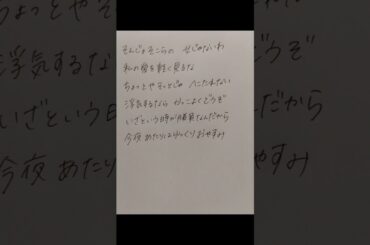 そんじょそこらの せじゃないわ
私の愛を軽く見るな
ちょっとやそっとじゃ へこたれない
浮気するなら かっこよくどうぞ
いざという時が勝負なんだから
今夜あたりはゆっくりおやすみ